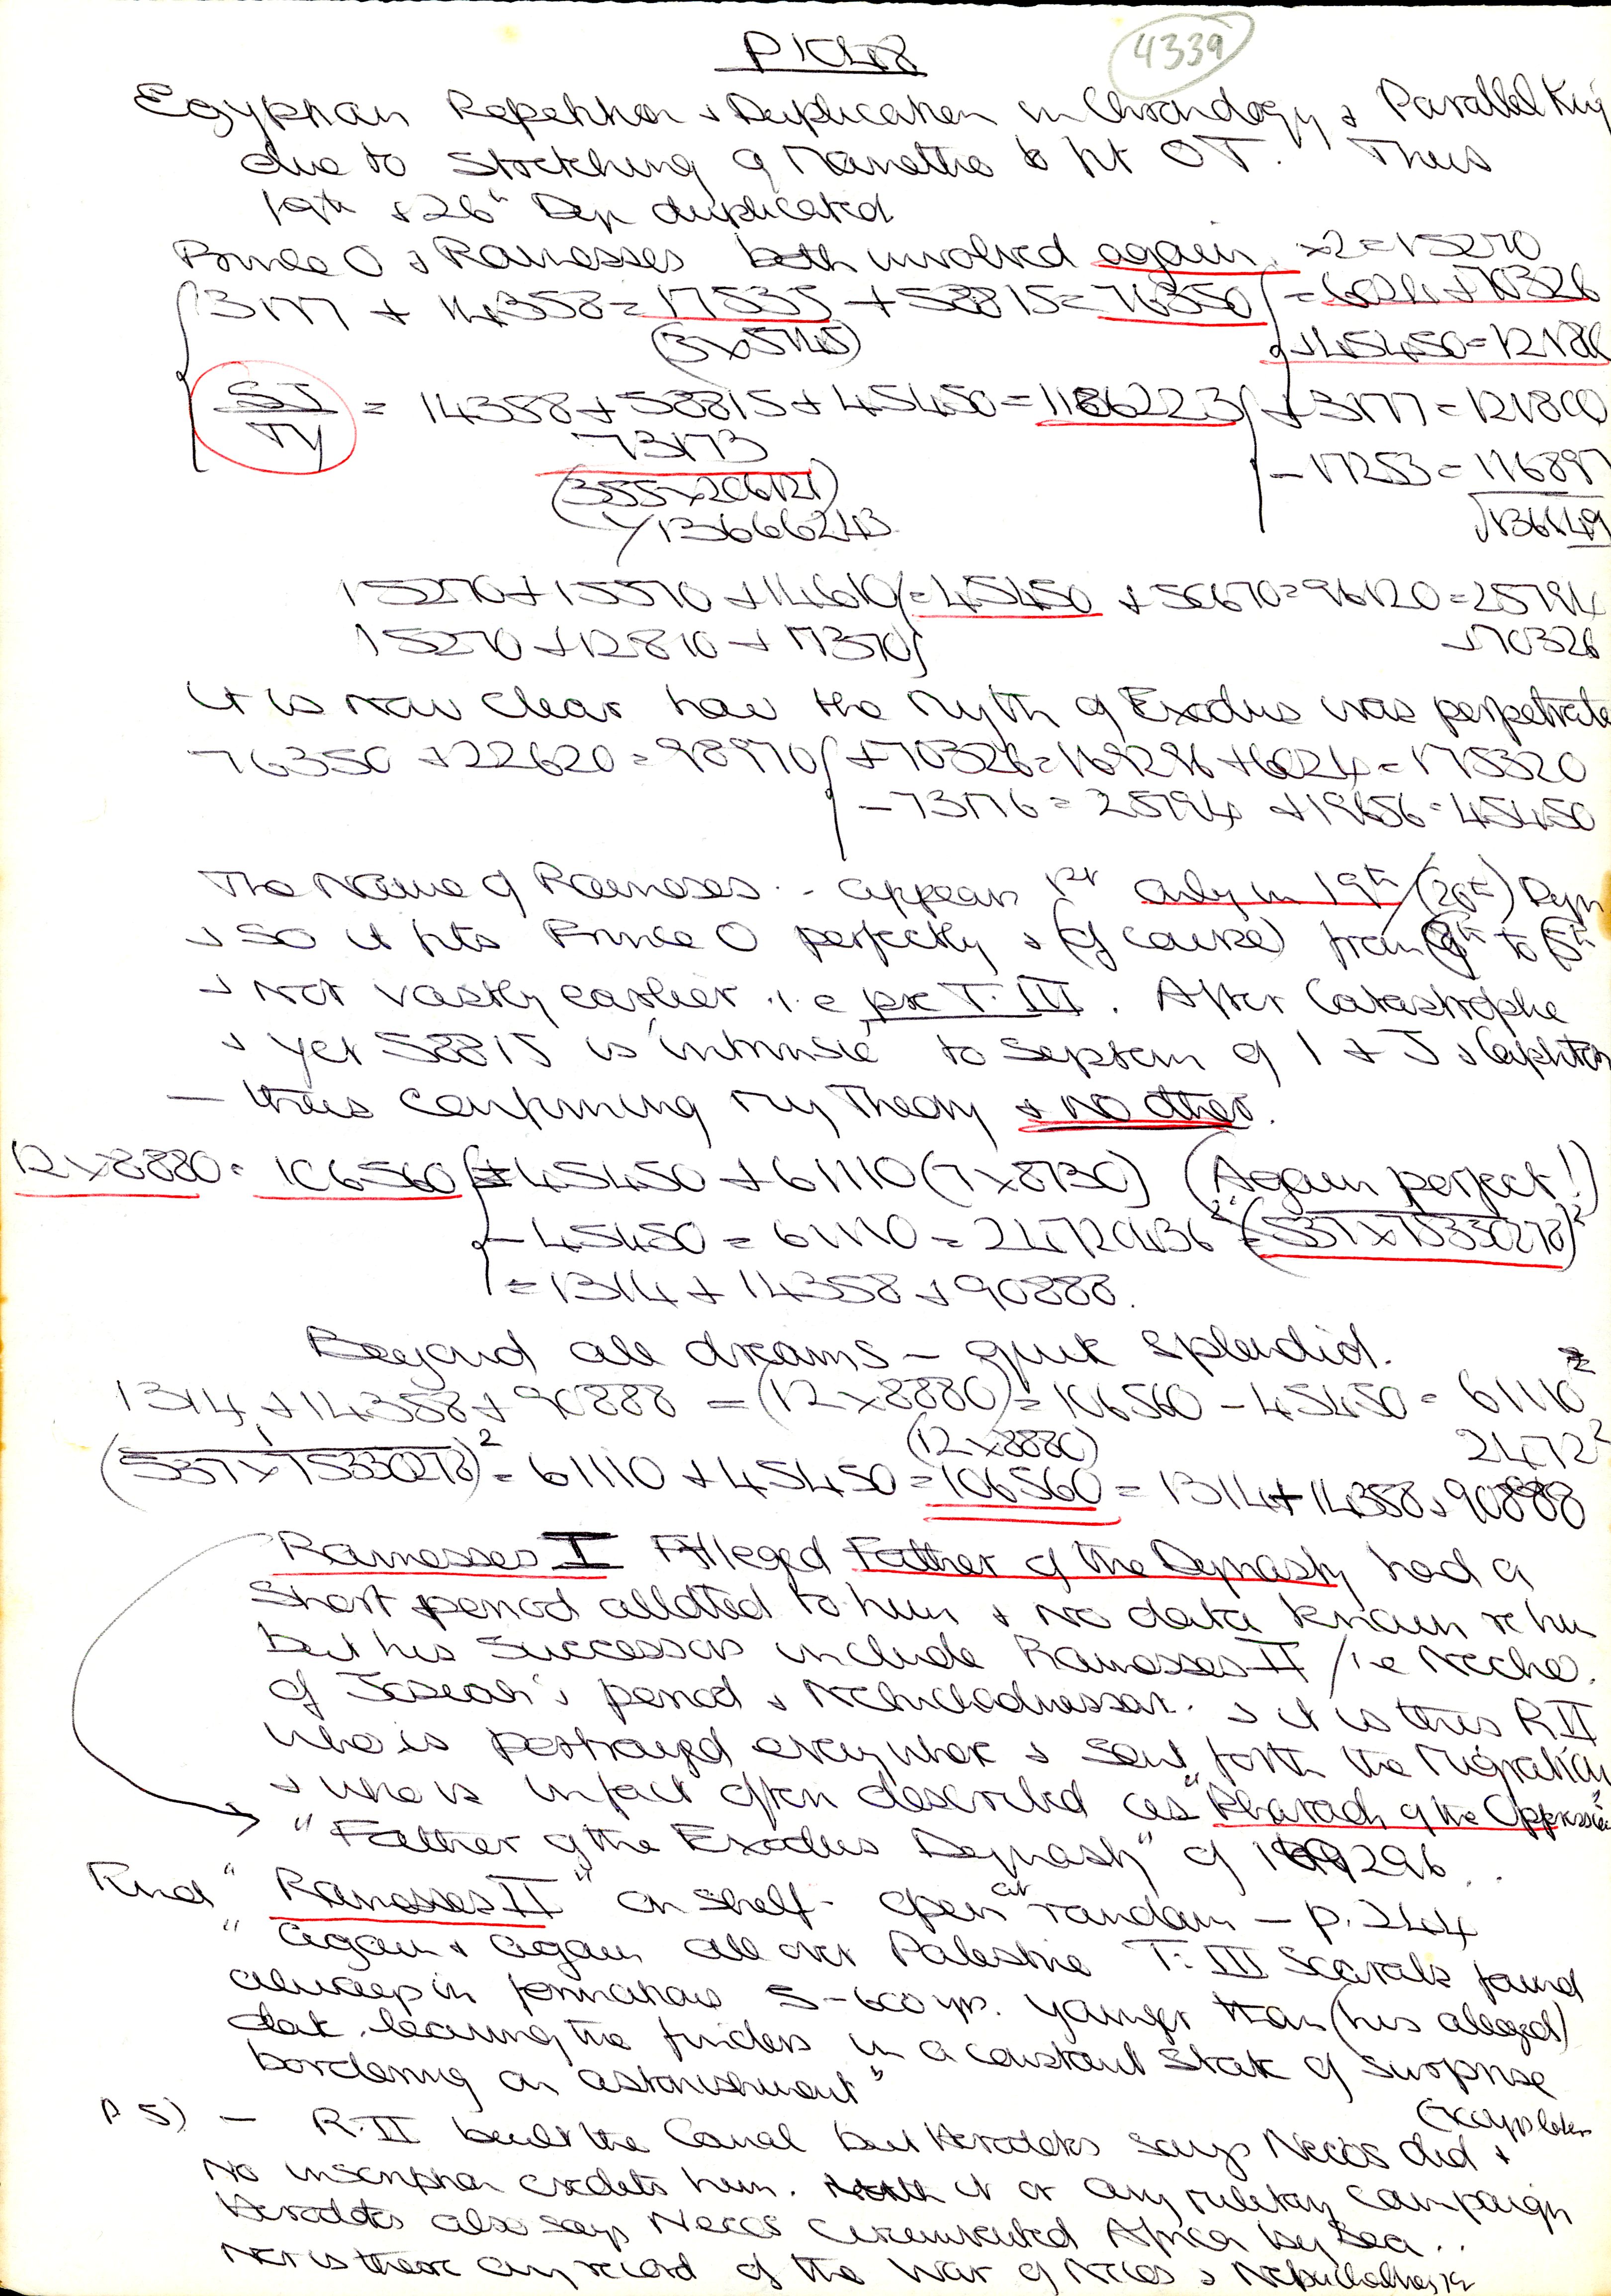 4339
Egyptian Repetition & Duplication in Chronology & Parallel King
due to stretching of Manetho to fit OT. Thus
19th & 26th Dyn duplicated
Prince O & Ramesses both involved again. x2=15270
3177 + 14358 = 17535 + 58815 = 76350 = 6024 + 70326
(3x5145) +45450=12180
SJ = 14358+58815+45450=1186223 +3177=121800
TY 73173 -17253=116897
(355x206121)
136666243 √136149
15270+15570+14610 =45450 +50670=96120=25794
15270+12810+17370 +70326
it is now clear how the Myth of Exodus was perpetrate
76350 +22620=98970 +70326=169296+6024=175320
-73176=25794 +19656=45450
The Name of Rameses .. appears 1st only in 19th/(20th) Dyn
& so it fits Prince O perfectly & (of course) from 8th to 5th
& not vastly earlier i.e pre T.III. After Catastrophe
& yet 58815 is 'intrinsic' to system of I & J &
— thus confirming my Theory & no other.
12x8880 = 106560 =45450+61110 (7x8730) (Again perfect!)
-45450=61110=24720436² =(537x75330278)²
=1314+14358+90888.
Beyond all dreams — quite splendid.
1314+14358+90888=(12x8880)=106560-45450=61110
(12x8880) 2472²
(537x75330278)²=61110+45450=106560=1314+14358+90888
Ramesses I Alleged Father of the Dynasty had a
short period allotted to him & no data known re him
but his successors include Ramesses II/i.e Necho.
of Josiah's period & Nebuchadnessar. & it is this R.II
who is portrayed everywhere & sent forth the Migration
& who is in fact often described as "Pharaoh of the Oppression"
"Father of the Exodus Dynasty" of 169296..
Find "Ramesses II" on shelf - open at random — p.244
"again & again all over Palestine T.III Scarabs found
always in formations 5-600 yrs. younger than (his alleged)
date. leaving the finders in a constant state of surprise
bordering on astonishment"
p 5) — R.II built the Canal but Herodotus says Necos did &
No inscription credits him. with it or any military campaign
Herodotus also says Necos circumvented Africa by Sea..
Nor is there any record of the War of Necos &